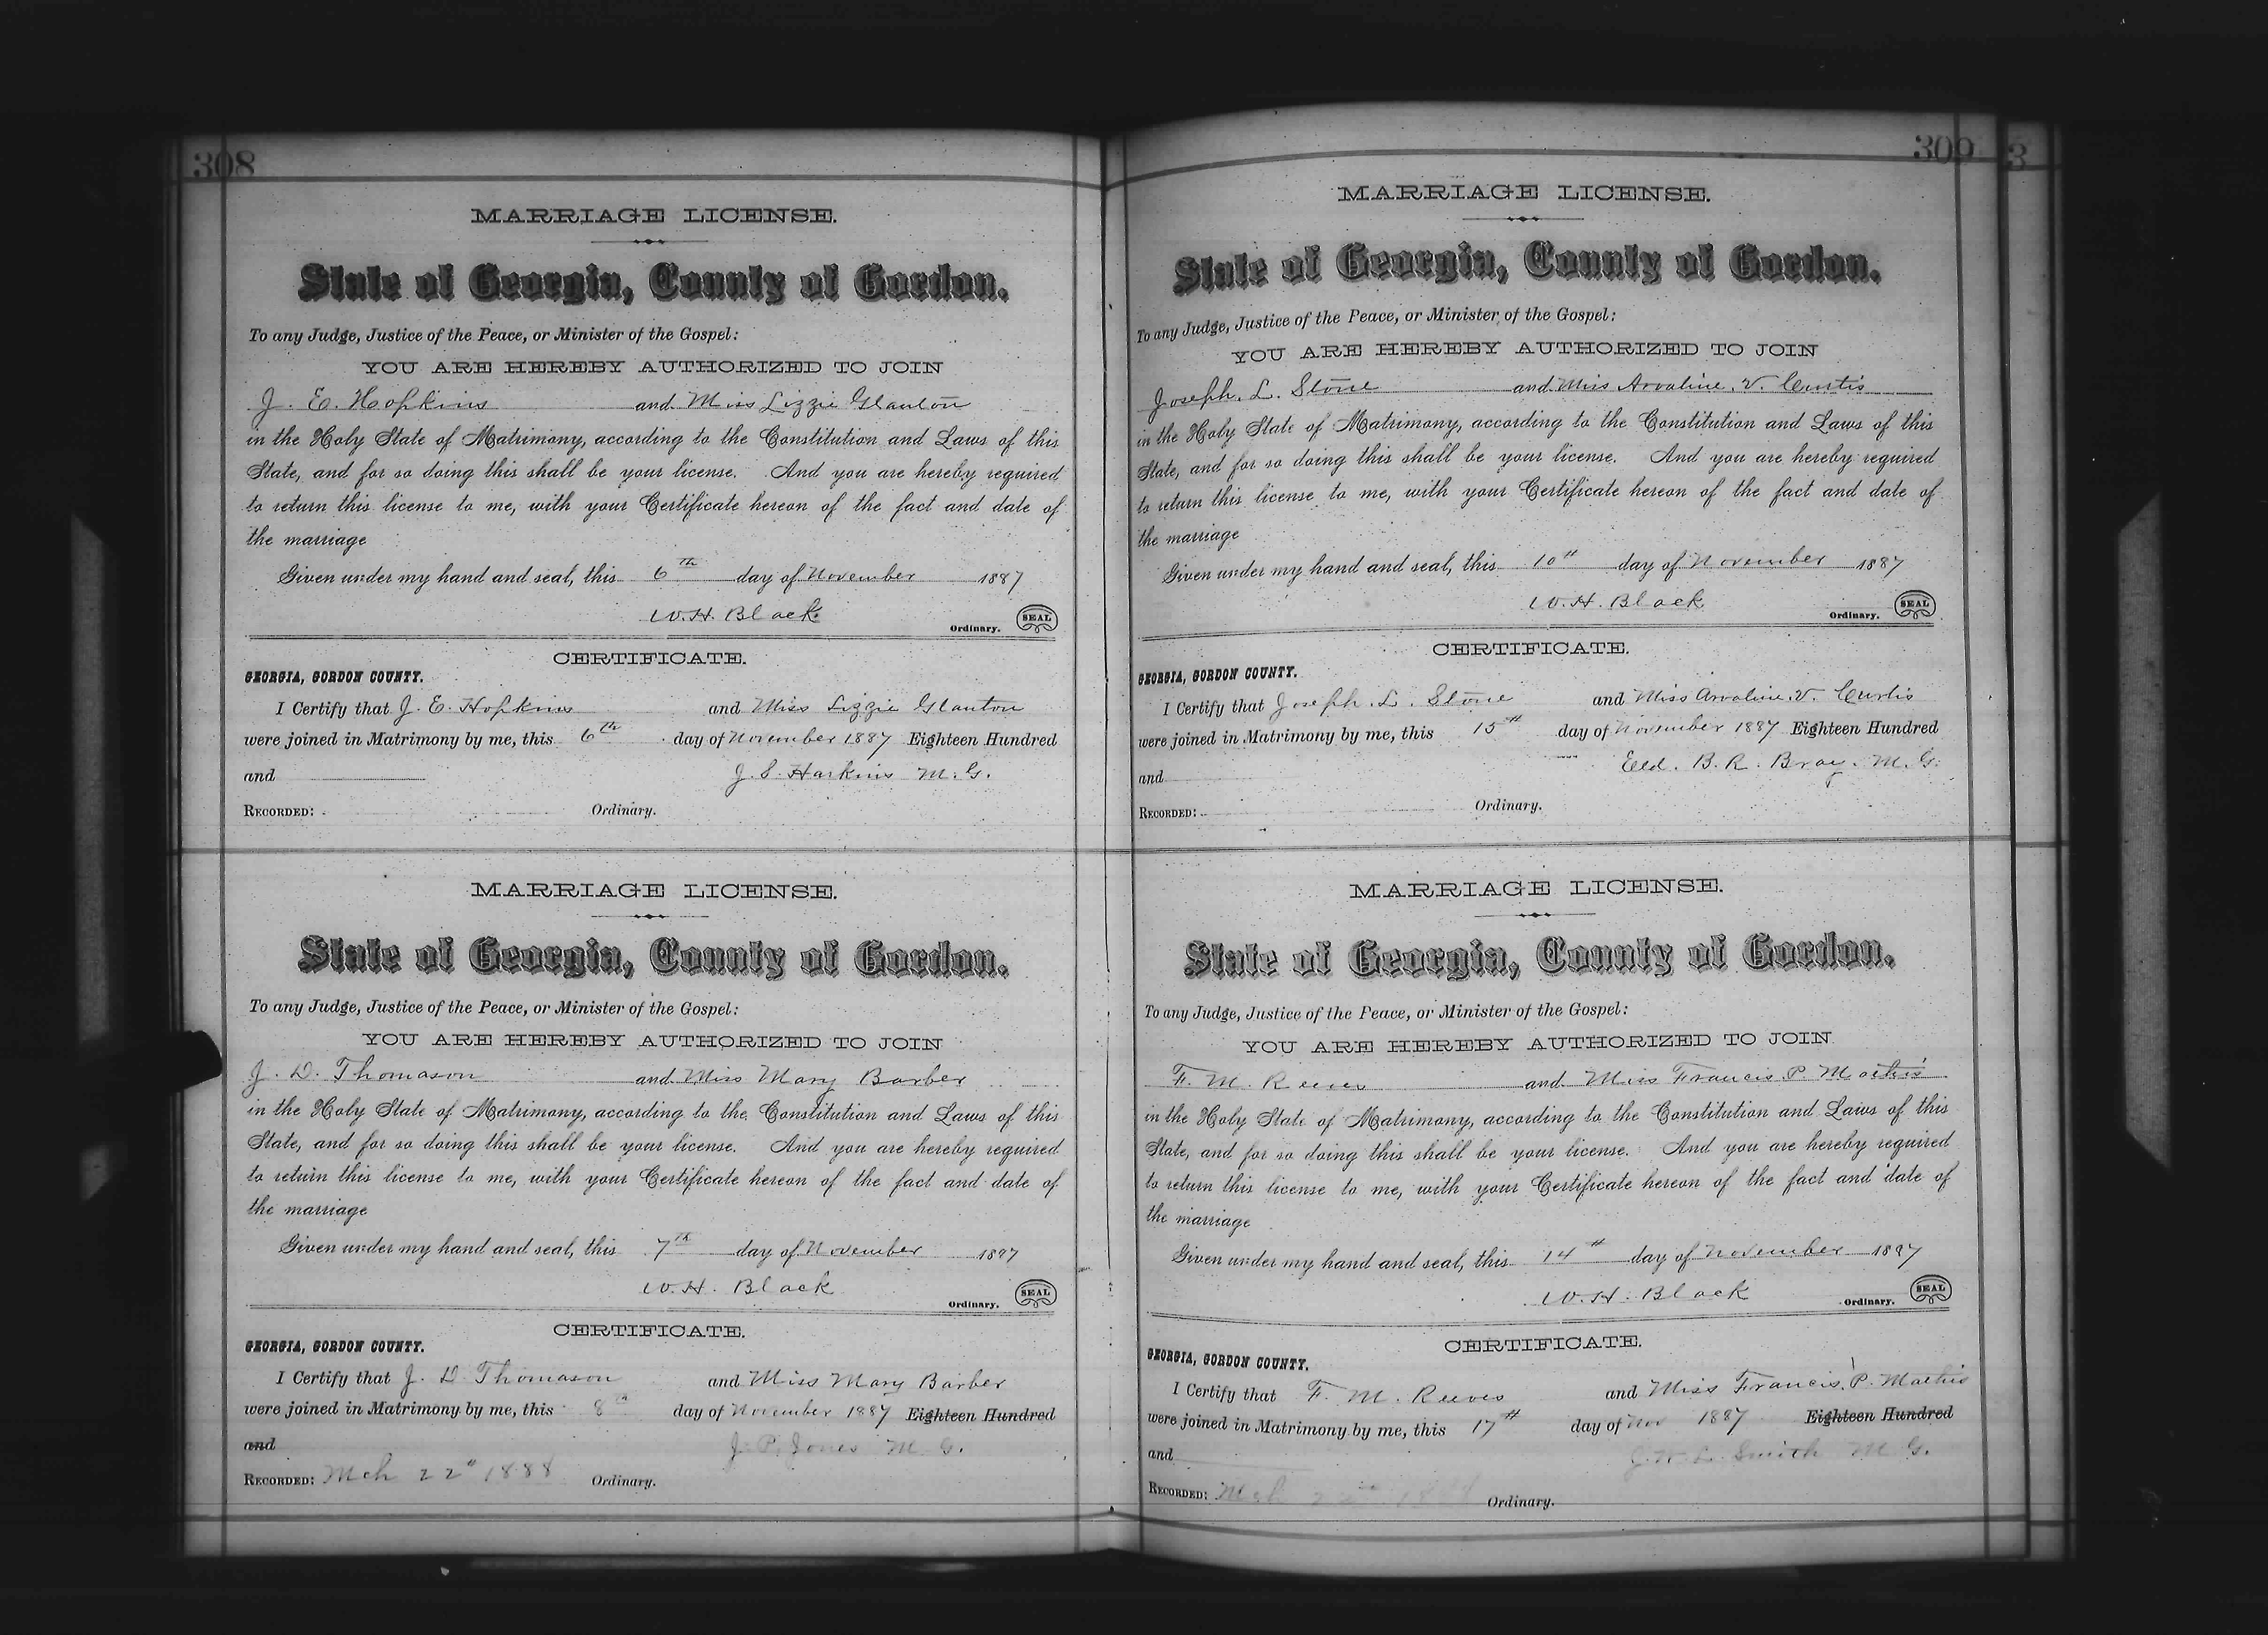 308
MARRIAGE LICENSE.
State of Georgia, County of Gordon.
To any Judge, Justice of the Peace, or Minister of the Gospel:
YOU ARE HEREBY AUTHORIZED TO JOIN
J. E. Hopkins and Miss Lizzie Glanton
in the Holy State of Matrimony, according to the Constitution and Laws of this
State, and for so doing this shall be your license. And you are hereby required
to return this license to me, with your Certificate hereon of the fact and date of
the marriage
Given under my hand and seal, this 6th day of November 1887
W. H. Black
Ordinary. SEAL
CERTIFICATE.
GEORGIA, GORDON COUNTY.
I Certify that J. E. Hopkins and Miss Lizzie Glanton
were joined in Matrimony by me, this 6th day of November 1887 Eighteen Hundred
and J. S. Harkins M. G.
RECORDED: Ordinary.
MARRIAGE LICENSE.
State of Georgia, County of Gordon.
To any Judge, Justice of the Peace, or Minister of the Gospel:
YOU ARE HEREBY AUTHORIZED TO JOIN
J. D. Thomason and Miss Mary Barber
in the Holy State of Matrimony, according to the Constitution and Laws of this
State, and for so doing this shall be your license. And you are hereby required
to return this license to me, with your Certificate hereon of the fact and date of
the marriage
Given under my hand and seal, this 7th day of November 1887
W. H. Black
Ordinary. SEAL
CERTIFICATE.
GEORGIA, GORDON COUNTY.
I Certify that J. D Thomason and Miss Mary Barber
were joined in Matrimony by me, this 8th day of November 1887 Eighteen Hundred
and J. P. Jones M. G.
RECORDED: Mch 22" 1888 Ordinary.
309 3
MARRIAGE LICENSE.
State of Georgia, County of Gordon.
To any Judge, Justice of the Peace, or Minister of the Gospel:
YOU ARE HEREBY AUTHORIZED TO JOIN
Joseph. L. Stone and Miss Arvaline. V. Curtis
in the Holy State of Matrimony, according to the Constitution and Laws of this
State, and for so doing this shall be your license. And you are hereby required
to return this license to me, with your Certificate hereon of the fact and date of
the marriage
Given under my hand and seal, this 10th day of November 1887
W. H. Black
Ordinary. SEAL
CERTIFICATE.
GEORGIA, GORDON COUNTY.
I Certify that Joseph. L. Stone and Miss Arvaline. V. Curtis
were joined in Matrimony by me, this 15th day of November 1887 Eighteen Hundred
and Eld. B. R. Bray. M. G.
RECORDED: Ordinary.
MARRIAGE LICENSE.
State of Georgia, County of Gordon.
To any Judge, Justice of the Peace, or Minister of the Gospel:
YOU ARE HEREBY AUTHORIZED TO JOIN
F. M. Reeves and Miss Francis. P. Mathis
in the Holy State of Matrimony, according to the Constitution and Laws of this
State, and for so doing this shall be your license. And you are hereby required
to return this license to me, with your Certificate hereon of the fact and date of
the marriage
Given under my hand and seal, this 14th day of November 1887
W. H. Black
Ordinary. SEAL
CERTIFICATE.
GEORGIA, GORDON COUNTY.
I Certify that F. M. Reeves and Miss Francis. P. Mathis
were joined in Matrimony by me, this 17th day of Nov 1887 Eighteen Hundred
and J. W. L. Smith M G.
RECORDED: Mch Ordinary.